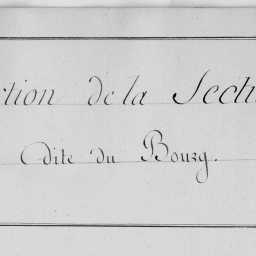 ction de la Secti
Dite du Bourg.